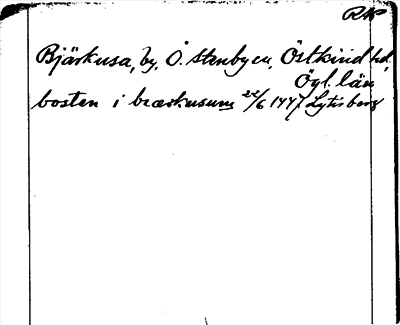 RAP
Bjärkusa, by, Ö. Stenby sn, Östkind hd,
Ögl. län
bosten i bærkusum 22/6 1447 Lytisberg